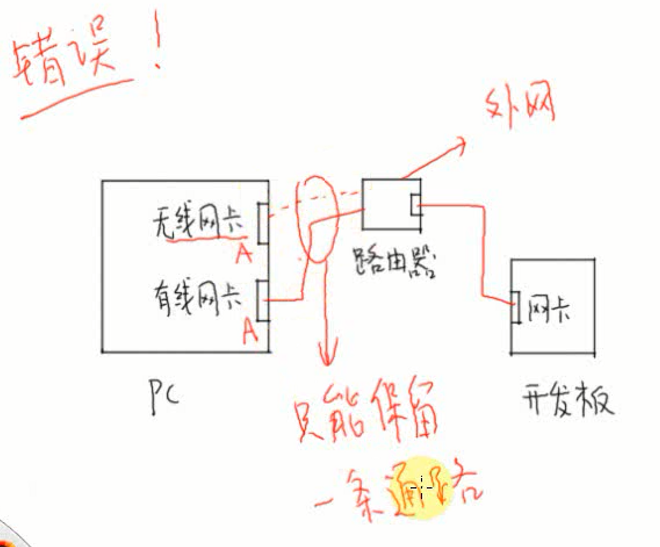 错误！
外网
无线网卡
A
路由器
有线网卡
A
网卡
PC
开发板
只能保留
一条通路